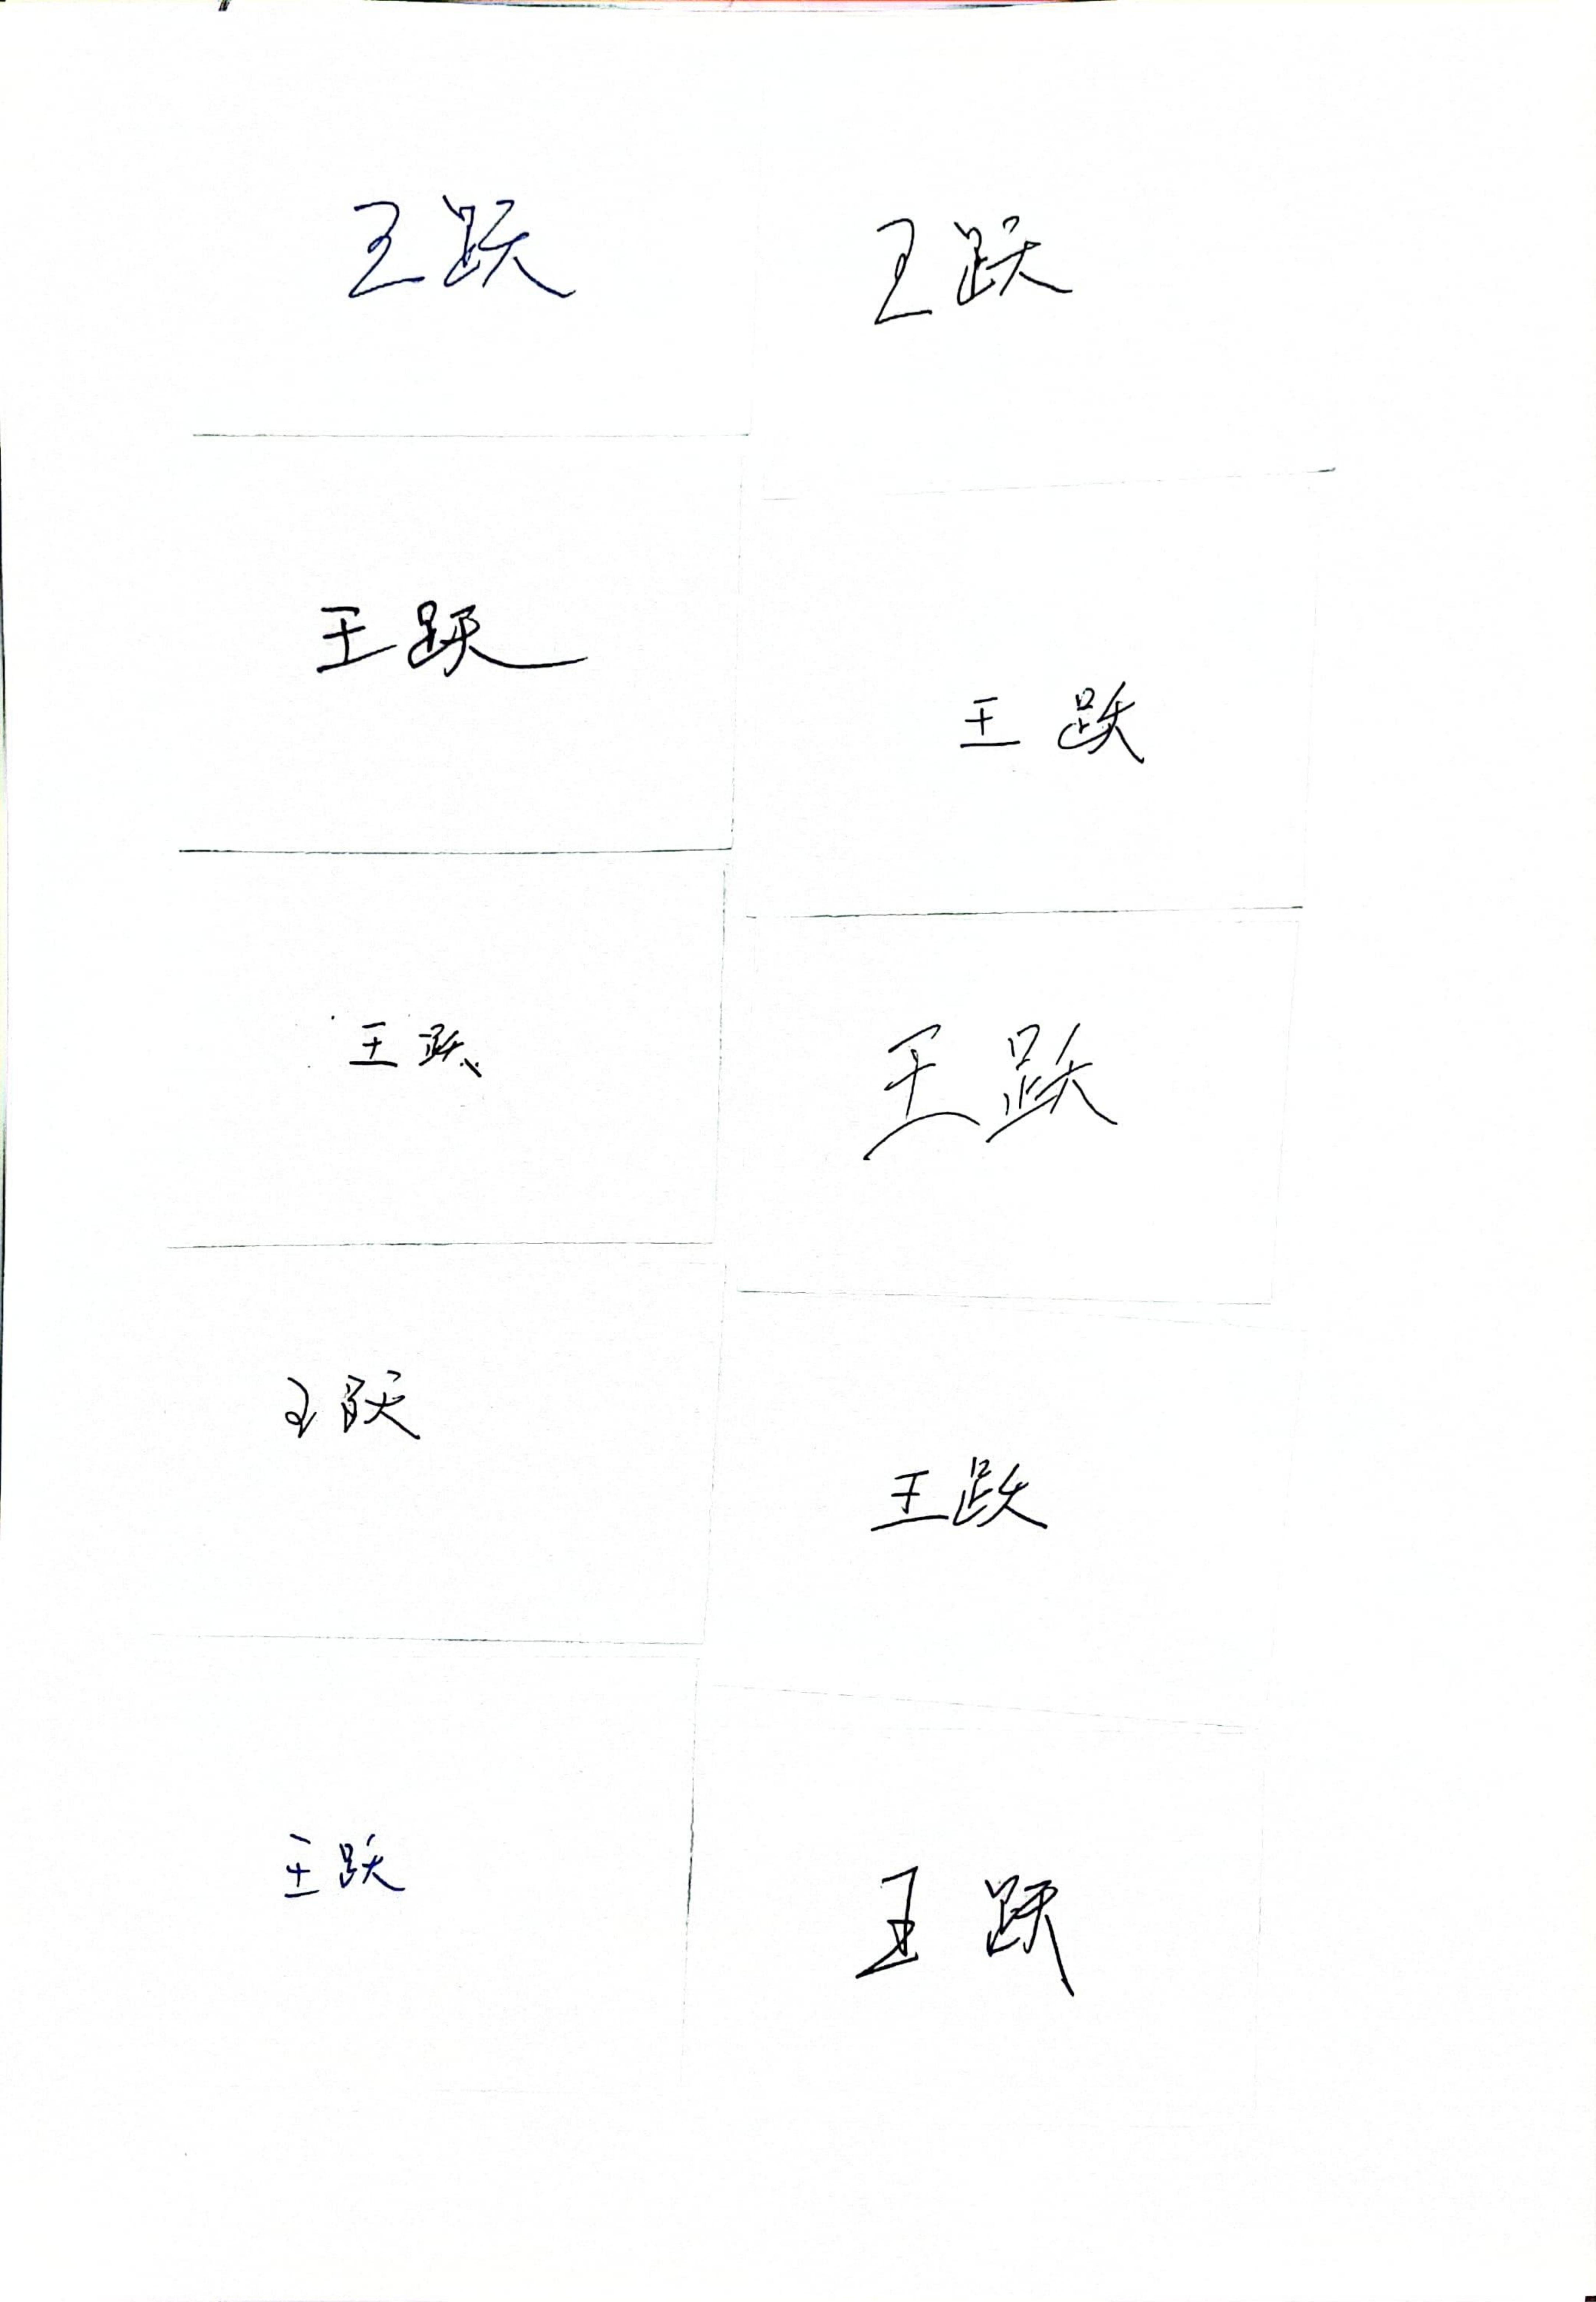 王跃 王跃
王跃
王跃
王跃
王跃
王跃
王跃
王跃
王跃